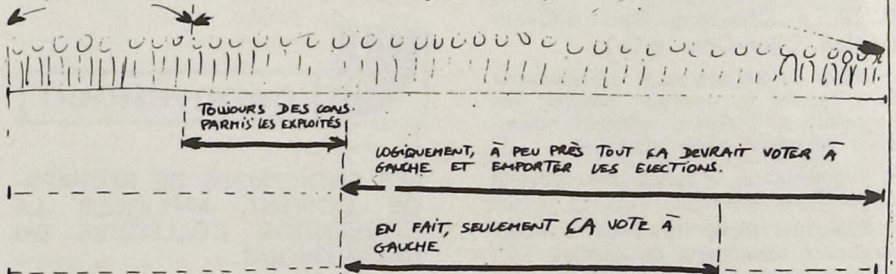 TOUJOURS DES CONS.
PARMIS LES EXPLOITÉS
LOGIQUEMENT, À PEU PRÈS TOUT ÇA DEVRAIT VOTER À
GAUCHE ET EMPORTER LES ELECTIONS.
EN FAIT, SEULEMENT ÇA VOTE À
GAUCHE